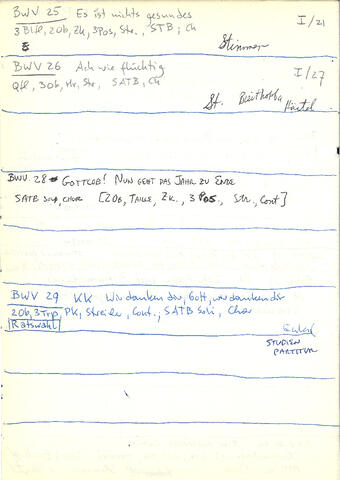 BWV 25 : Es ist nichts gesundes I/21
3 Blfl, 2Ob, Zk, 3Pos, Str., STB ; Ch
Stimmen
BWV 26 Ach wie flüchtig I/27
Qfl, 3Ob, Hr, Str, SATB, Ch
St. Breitkopf Härtel
BWV 28 GOTTLOB! NUN GEHT DAS JAHR ZU ENDE
SATB SOLO, CHOR [2Ob, TAILLE, Zk., 3 Pos., Str., Cont]
BWV 29 KK Wir danken dir, Gott, wir danken dir
2Ob, 3Trp, Pk, Streicher, Cont., SATB Soli, Chor
Ratswahl
STUDIEN
PARTITUR